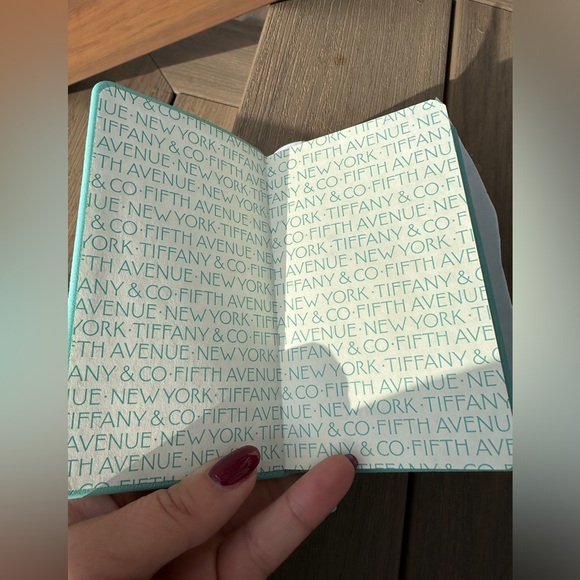 ANY & CO·
NUE·NEW YORK·TIFFANY
TIFFANY & CO·FIFTH
AVENUE·NEW YORK·
FTH AVENUE·NEW YORK
& CO·FIFTH AVENUE
NEW YORK·TIFFANY
YORK·TIFFANY & CO
AVENUE·NEW
ANY & CO·FIFTH AVENUE
AVENUE·NEW YORK·
YORK·TIFFANY & CO·
TH AVENUE·NEW YORK
ANY & CO·FIFTH AVENUE
NEW YORK·TIFFANY
TIFFANY & CO·FIFTH AVENUE
AVENUE·NEW YORK
FTH AVENUE
TIFFANY &
NEW YORK·TIFFANY & CO
CO·FIFTH AVENUE·NEW
NEW YORK·TIFFANY
TIFFANY & CO·FIFTH
FIFTH AVENUE·NEW YORK
NEW YORK·TIFFANY & CO
& CO·FIFTH AVENUE·
NEW YORK·TIFFANY
TIFFANY & CO·FIFTH
AVENUE·NEW YORK·
TIFFANY & CO·
& CO·FIFTH AVENUE
NEW YORK·TIFFANY
TIFFANY & CO·FIFTH
AVENUE·NEW YORK
NEW YORK·TIFFANY &
CO·FIFTH AVENUE
NEW YORK·TIFFANY
TIFFANY & CO·FIFTH
TIFFANY & CO